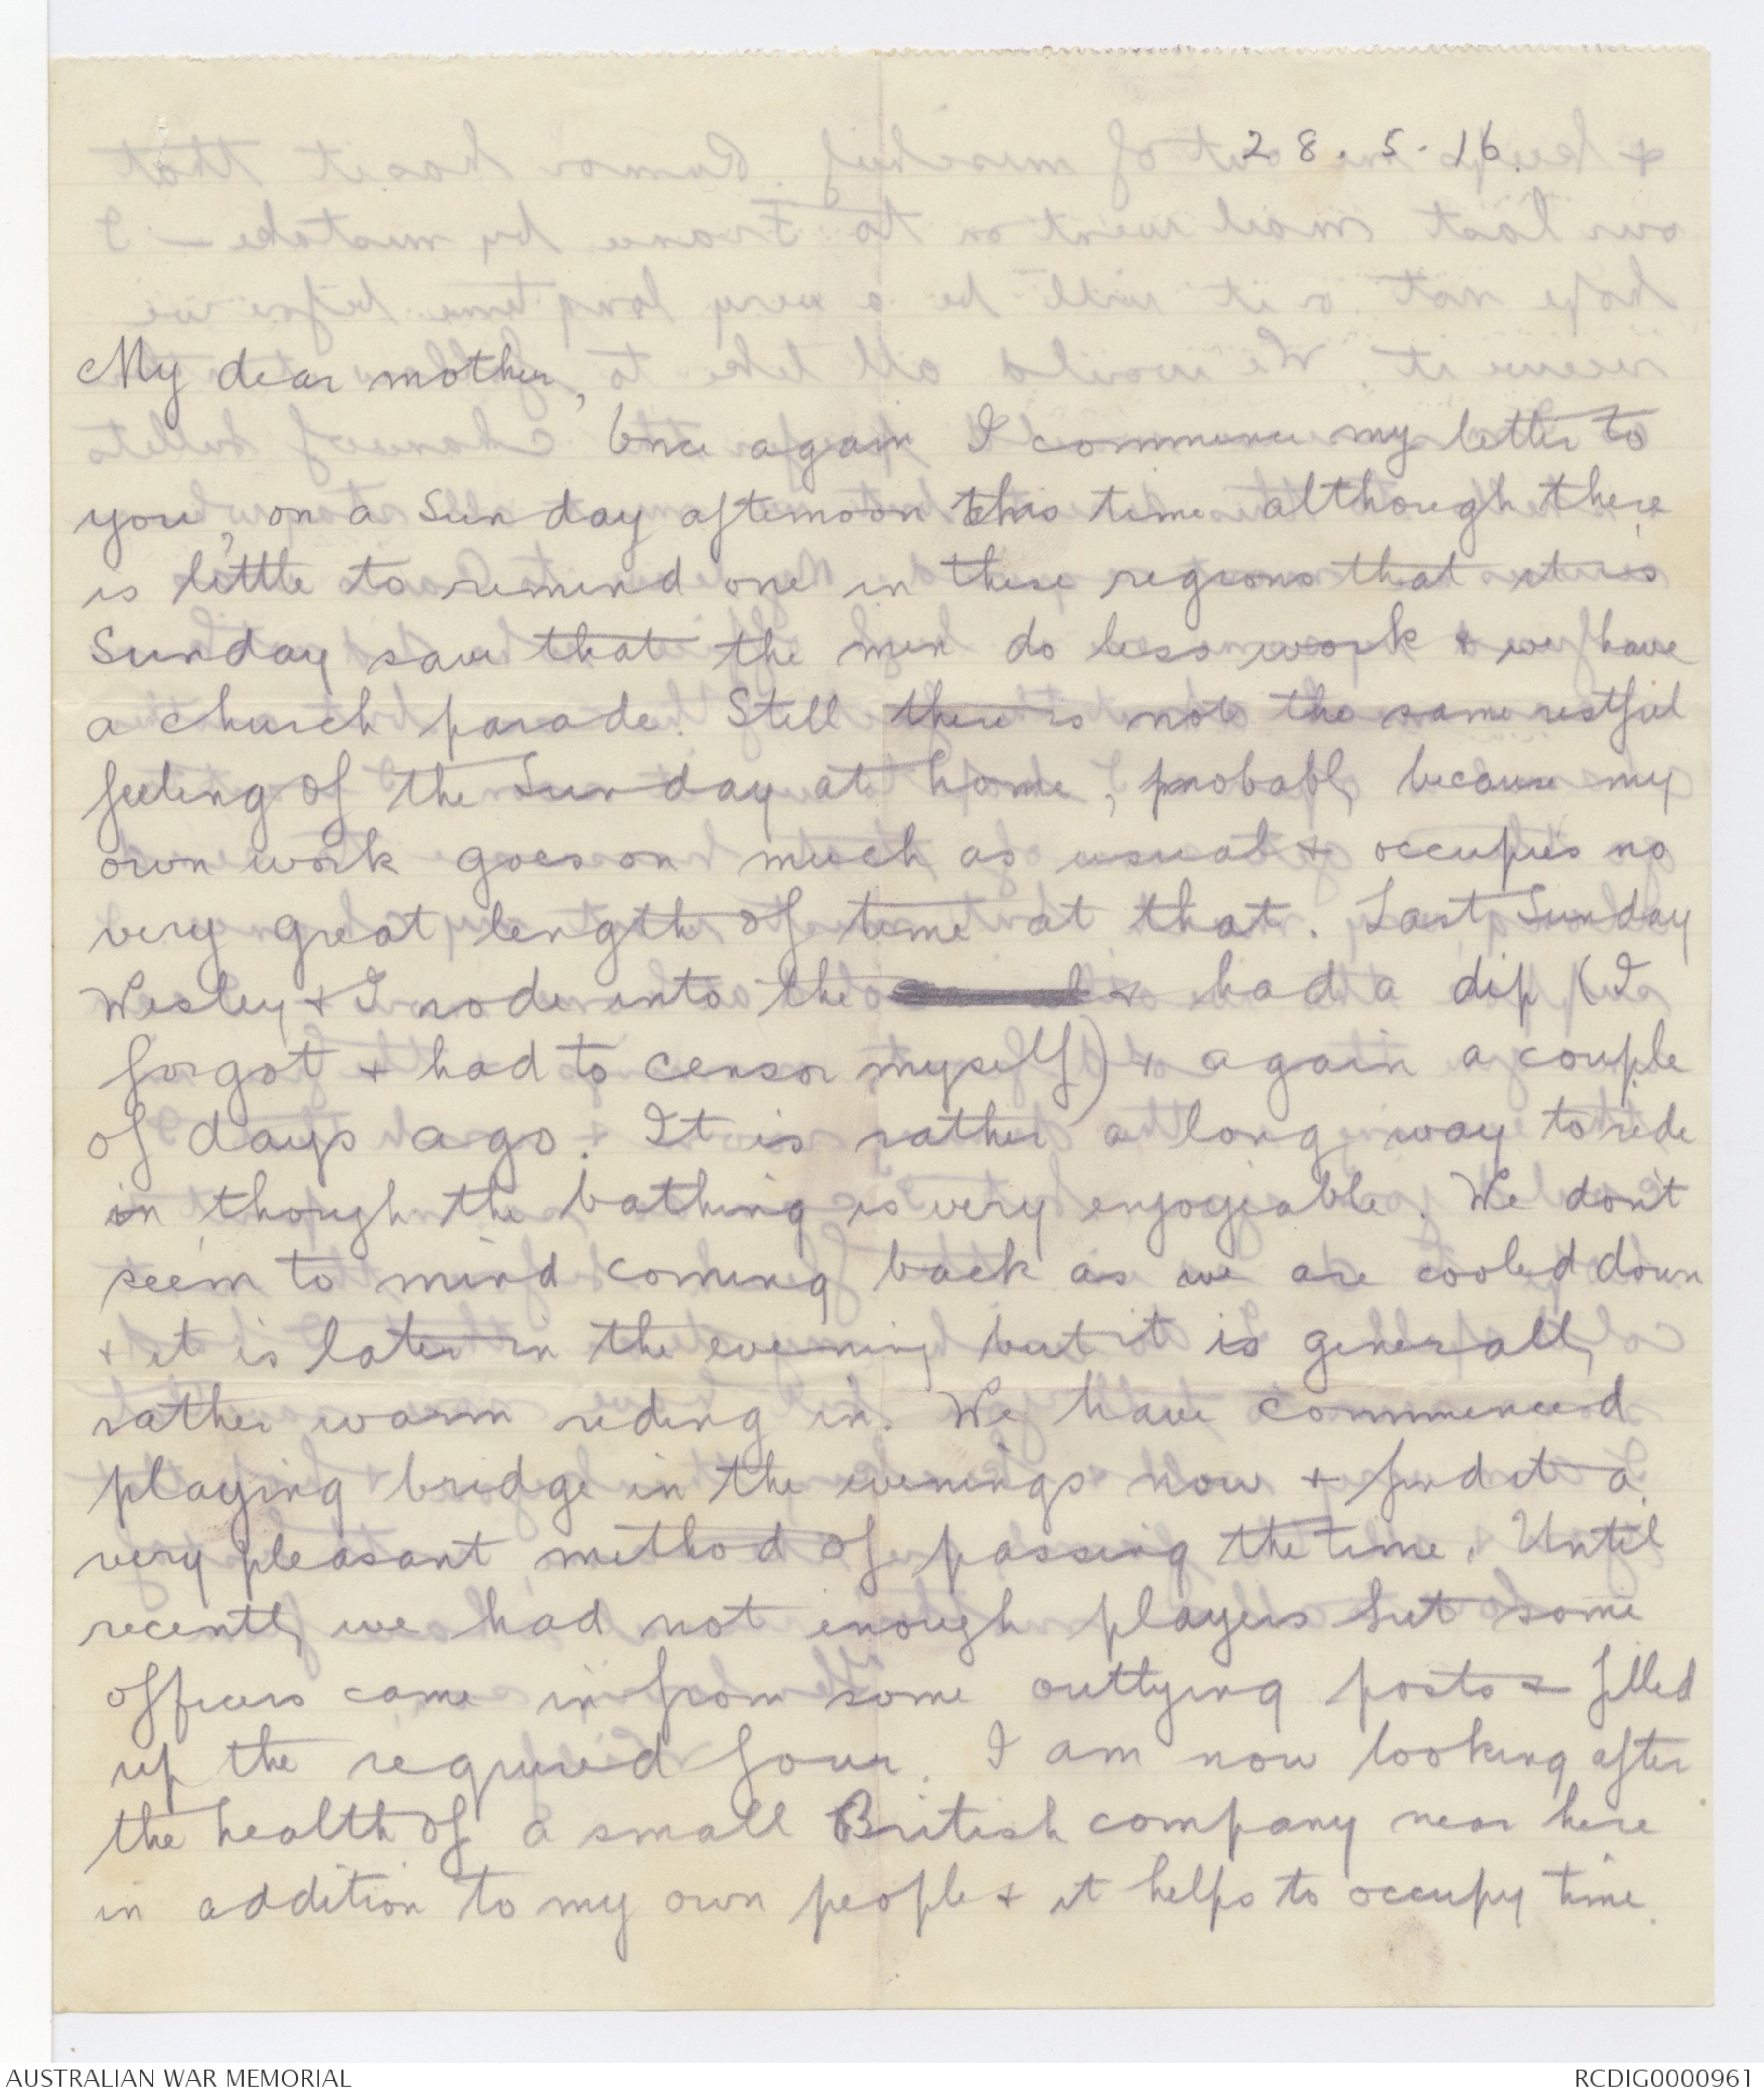 28.5.16.
My dear mother,
Once again I commence my letter to
you, on a Sunday afternoon this time although there
is little to remind one in these regions that it is
Sunday save that the men do less work & we have
a church parade. Still there is not the same restful
feeling of the Sunday at home, probably because my
own work goes on much as usual & occupies no
very great length of time at that. Last Sunday
Wesley & I rode into the & had a dip (I
forgot & had to censor myself) & again a couple
of days ago. It is rather a long way to ride
in though the bathing is very enjoyable. We don't
seem to mind coming back as we are cooled down
& it is later in the evening but it is generally
rather warm riding in. We have commenced
playing bridge in the evenings now & find it a
very pleasant method of passing the time. Until
recently we had not enough players but some
officers came in from some outlying posts & filled
up the required four. I am now looking after
the health of a small British company near here
in addition to my own people & it helps to occupy time.
AUSTRALIAN WAR MEMORIAL
RCDIG0000961